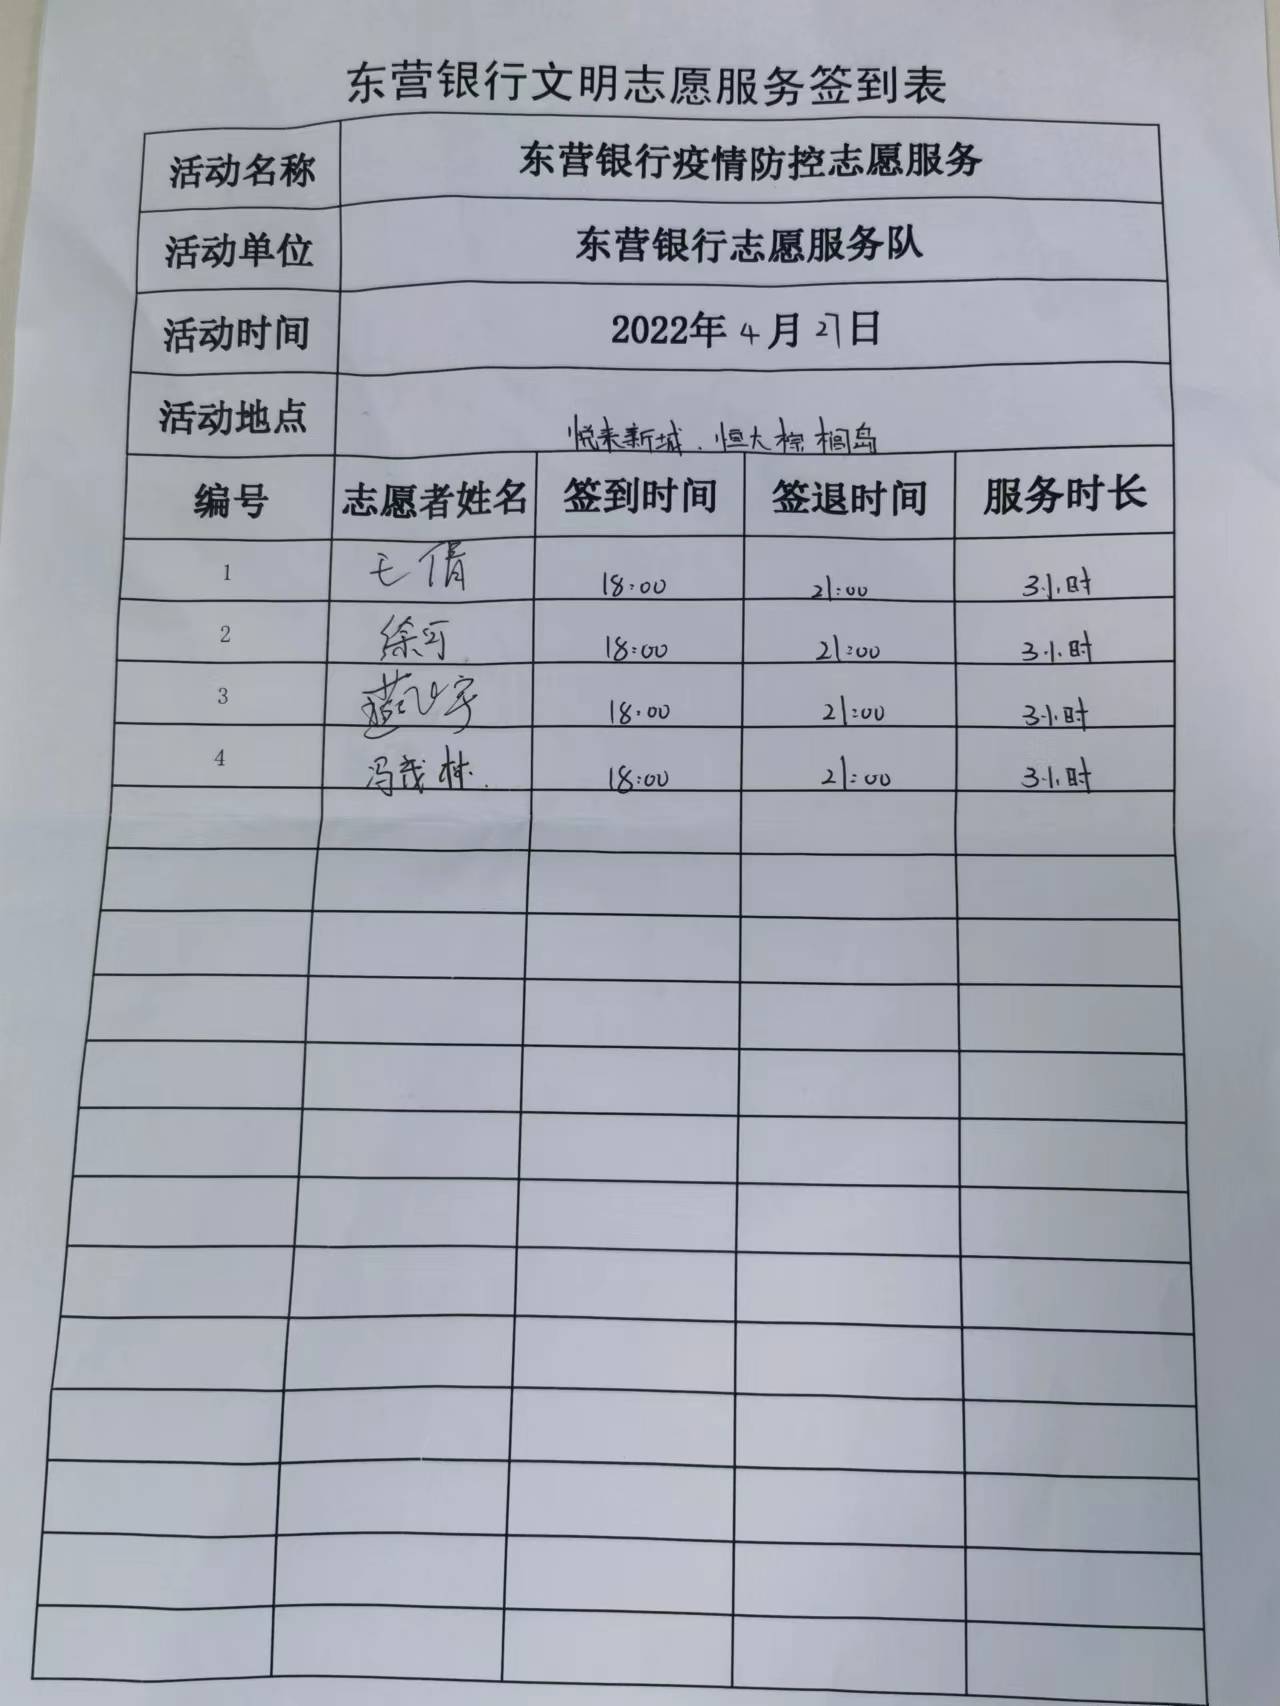 东营银行文明志愿服务签到表
活动名称 东营银行疫情防控志愿服务
活动单位 东营银行志愿服务队
活动时间 2022年4月27日
活动地点 悦来新城、恒大棕榈岛
编号 志愿者姓名 签到时间 签退时间 服务时长
1 毛倩 18:00 21:00 3小时
2 徐可 18:00 21:00 3小时
3 18:00 21:00 3小时
4 冯茂林 18:00 21:00 3小时